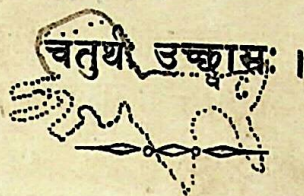 चतुर्थः उच्छ्वासः ।